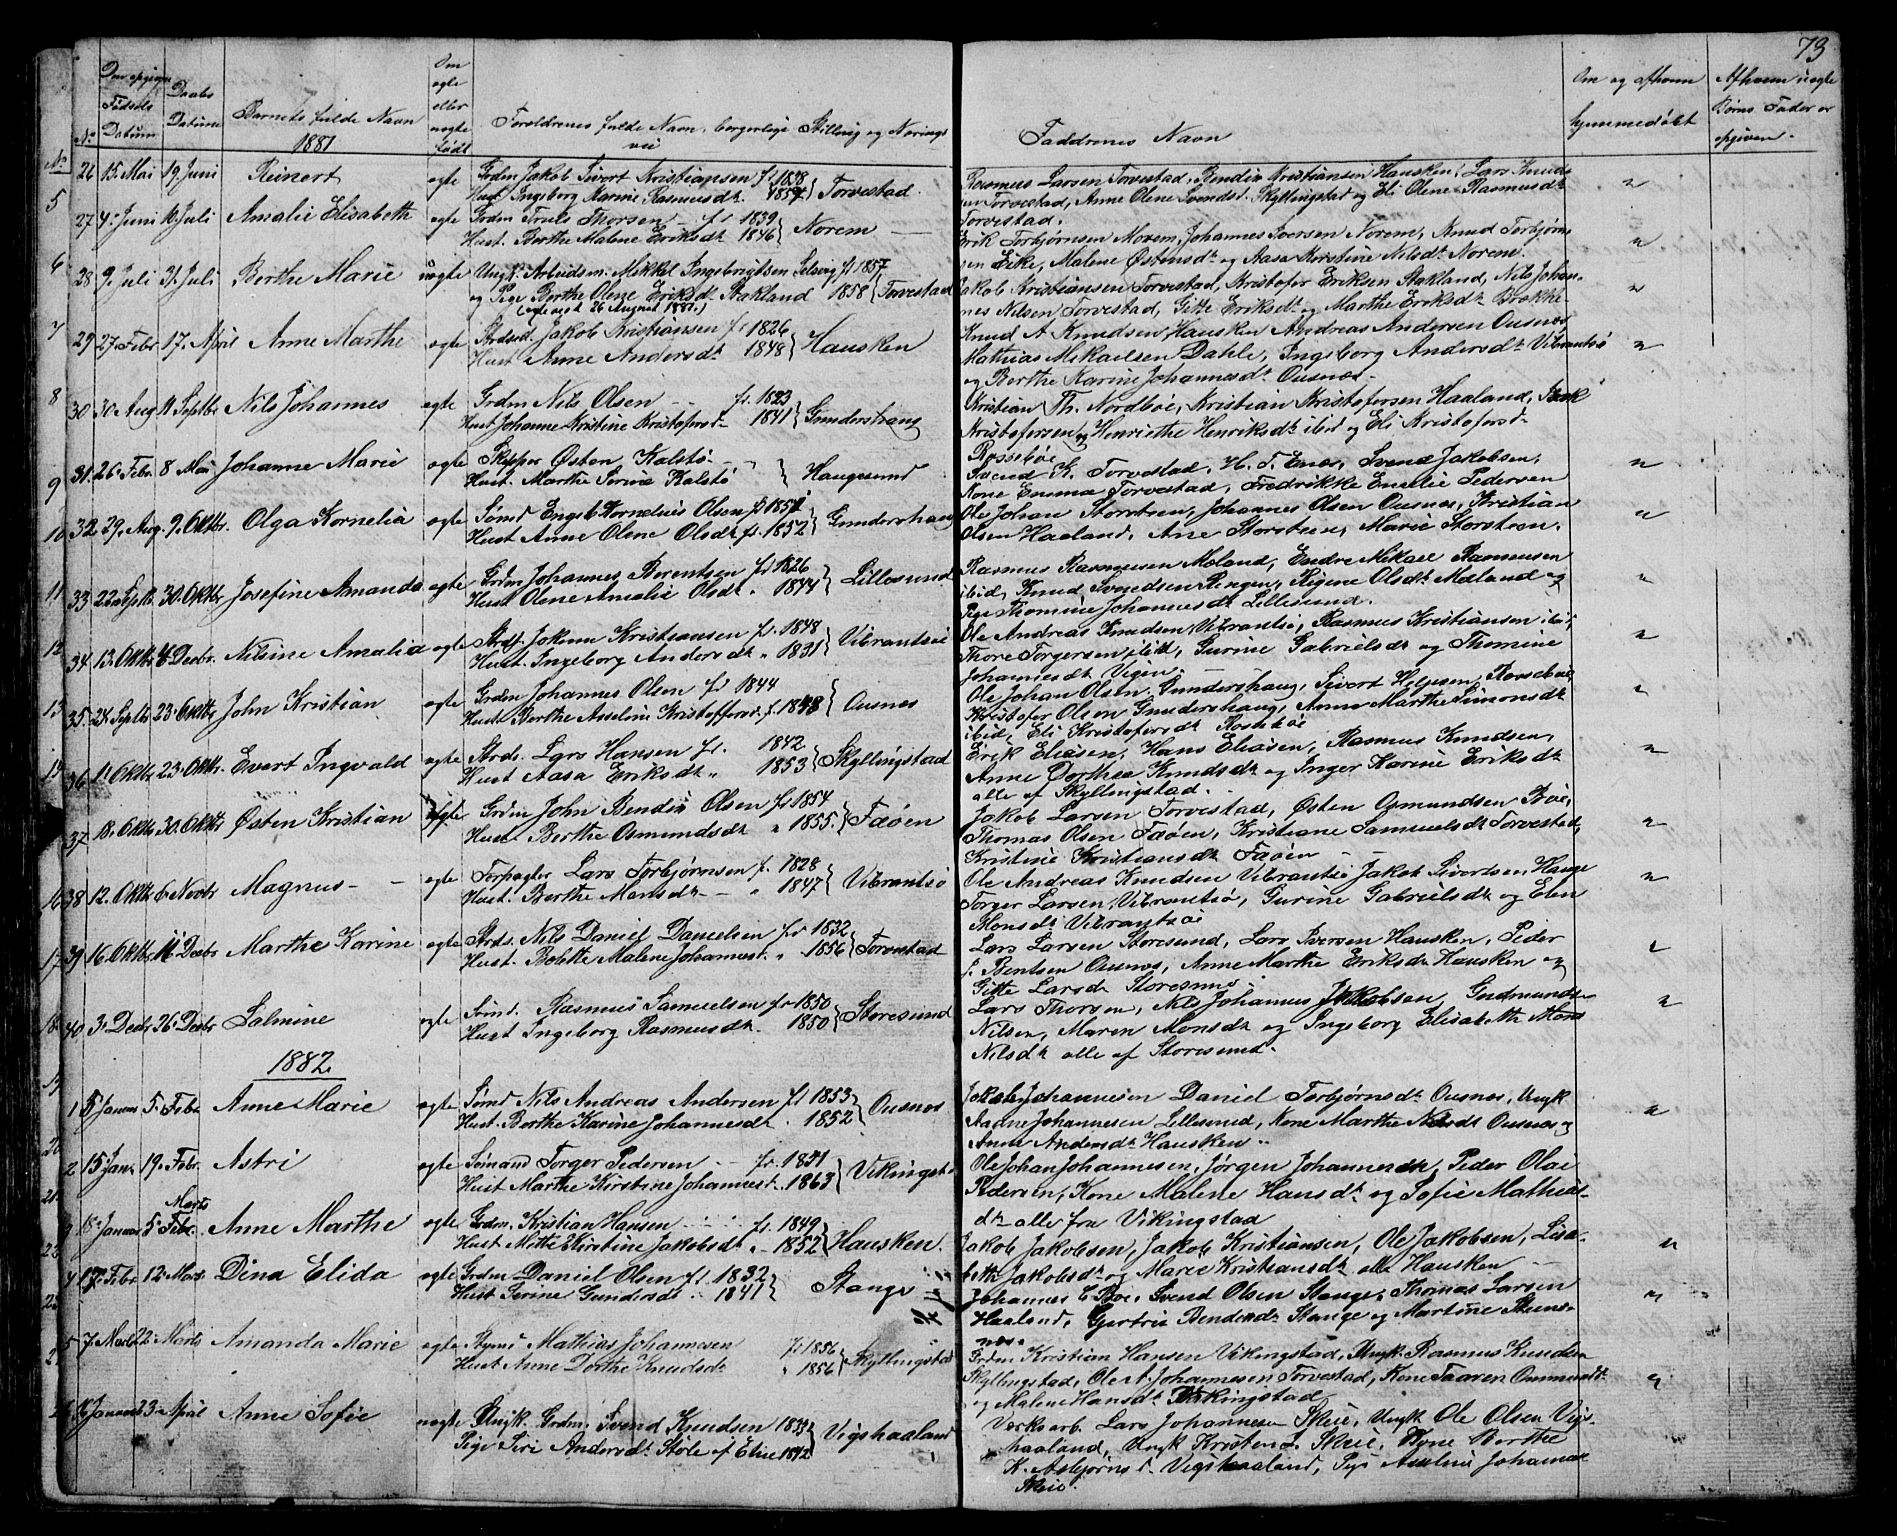 73
Den opgivne Fødsels Datum
Daabs Datum
Barnets fulde Navn
1881
Om ægte eller uægte født
Forældrenes fulde Navn, borgerlige Stilling og Nærings vei
Faddrenes Navn
Om og af hvem hjemmedøbt
Af hvem uægte Børns Fader er opgiven.
No
26 15. Mai 19. Juni Reinert ægte Grdm Jakob Sivert Kristiansen f. 1838
Hust. Ingeborg Karine Rasmusdt. 1854 Torvestad.
Rasmus Larsen Torvestad, Bendix Kristiansen Hausken, Lars Knuds
sen Torvestad, Anne Olene Svendsd. Skyllingstad og Eli Olene Rasmusdt
Torvestad.
27 4. Juni 10 Juli Amalie Elisabeth ægte Grdm Truls Thorsen f. 1839
Hust. Berthe Malene Eriksdt 1846 Norem
Erik Torbjørnsen Norem, Johannes Iversen Norem, Knud Torbjørn
sen Eike, Malene Østensdt og Aasa Kristine Nilsdt Norem.
28 9. Juli 31. Juli Berthe Marie uægte Ungk. Arbeidsm. Mikkel Ingebrigtsen Selvig f. 1857
og Pige Berthe Olene Eriksdt Stakland 1858 Torvestad
Jakob Kristiansen Torvestad, Kristofer Eriksen Stakland, Nils Johan-
nes Nilsen Torvestad, Gitte Eriksdt og Marthe Eriksdt Brekke
29 27. Febr 17. April Anne Marthe ægte Strdsd. Jakob Kristiansen f. 1826
Hust Anne Andersdt 1848 Hausken
Knud A Knudsen Hausken Andreas Andersen Ousnes,
Mathias Mikaelsen Dahle, Ingeborg Andersdt Vibrantsø
og Berthe Karine Johannesdt Ousnes
30 30 Aug 11 Septbr Nils Johannes ægte Grdm Nils Olsen f. 1823
Hust Johanne Kristine Kristofersdt 1841 Gundershaug
Kristian Th. Nordbøe, Kristian Kristofersen Haaland,
Kristofersen og Henriethe Henriksdt ibid og Eli Kristofersdt
Røssebøe
31. 26. Febr. 8 Mai Johanne Marie ægte Skipper Østen Kalstø
Hust. Marthe Serine Kalstø Haugesund
Svend K. Torvestad, H. T. Enes, Svend Jakobsen,
Kone Emma Torvestad, Fredrikke Emelie Pedersen
32 29. Aug. 9. Oktbr. Olga Kornelia ægte Sømd Engelb. Kornelius Olsen f. 1854
Hust Anne Olene Olsdt f. 1852 Gundershaug
Ole Johan Storsteen, Johannes Olsen Ousnes, Kristian
Olsen Haaland, Ane Storsteen, Marie Storsteen.
33 22 Septb 30. Oktbr Josefine Amanda ægte Grdm Johannes Berentsen f. 1826
Hust Olene Amalie Olsdt 1844 Lillesund
Rasmus Rasmussen Meland, Endre Mikael Rasmussen
ibid, Knud Svendsen Ringen, Rigene Olsdt Meland og
Pige Thomine Johannesdt Lillesund.
34 13. Oktbr 26 Decbr. Nilsine Amalia ægte Strdf Johan Kristiansen f. 1848
Hust. Ingeborg Andersdt 1831 Vibrantsø
Ole Andreas Knudsen Vibrantsø, Rasmus Kristiansen ibid,
Thore Torgersen ibid, Gurine Gabrielsdt og Thomine
Johannesdt Vigen.
35. 24. Septbr 23. Oktbr John Kristian ægte Grdm Johannes Olsen f. 1844
Hust. Berthe Asseline Kristoffersd. f. 1848 Ousnes
Ole Johan Olsen Gundershaug, Sivert Helgesen Røssebøe
Kristofer Olsen Gundershaug, Anne Marthe Simonsdt
ibid, Eli Kristofersdt Rossebøe
36. 11. Oktbr 23. Oktbr. Evert Ingvald ægte Strds. Lars Hansen f. 1842
Hust Aasa Eriksdt 1853 Skyllingstad
Erik Eliasen, Hans Eliasen, Rasmus Knudsen,
Anne Dorthea Knudsdt og Inger Karine Eriksdt
alle af Skyllingstad.
37 18. Oktbr 30. Oktbr Østen Kristian ægte Grdm John Bendix Olsen f. 1854
Hust. Berthe Osmundsdt 1855. Faøen
Jakob Larsen Torvestad, Østen Osmundsen Bøe,
Thomas Olsen Faøen, Kristiane Samuelsdt Torvestad,
Kristine Kristiansdt Faøen
38 12. Oktbr 6 Novbr Magnus ægte Forpagter Lars Torbjørnsen f. 1828
Hust. Berthe Monsdt 1847 Vibrantsø
Ole Andreas Knudsen Vibrantsø Jakob Sivertsen, Hauge
Torger Larsen, Vibrantsø, Gurine Gabrielsdt og Elen
Monsdt Vibrantsøe
39 16. Oktbr. 11 Decbr Marthe Karine ægte Strds. Nils Daniel Danielsen f. 1832
Hust. Bolette Malene Johannesdt. 1856 Torvestad
Lars Larsen Storesund, Lars Iversen Hausken, Peder
Bentsen Ousnes, Anne Marthe Eriksdt Hausken og
Gitte Larsdt Storesund
40 3. Decbr 26. Decbr Salmine ægte Sømd. Rasmus Samuelsen f. 1850
Hust Ingeborg Rasmusdt. 1850 Storesund
Lars Thorsen, Nils Johannes Jakobsen, Gudmund
Nilsen, Maren Monsdt og Ingeborg Elisabeth Mons
Nilsdt alle af Storesund.
1882.
1 5 Januar 5. Febr Anne Marie ægte Sømd Nils Andreas Andersen f. 1853
Hust. Berthe Karine Johannesdt 1852 Ousnes
Jakob Johannesen Daniel Torbjørnsdt Ousnes, Ungk
Aanne Johannesen Lillesund, Kone Marthe Nilsdt Ousnes og
Anne Andersdt Hausken
2 15 Jan. 19. Febr. Astri ægte Sømand Torger Pedersen f. 1851
Hust Marthe Kirstine Johannesdt. 1863 Vikingst.
Ole Johan Johannesen, Jørgen Johannesdt, Peder Olai
Pedersen, Kone Malene Hansdt og Sofie Mathias-
dt alle fra Vikingstad
18. Januar 5. Marts Anne Marthe ægte Grdm. Kristian Hansen f. 1849
Hust Mette Kirstine Jakobsdt 1852 Hausken.
Jakob Jakobsen, Jakob Kristiansen, Ole Jakobsen, Lisa-
beth Jakobsdt og Marie Kristiansdt alle Hausken
4 17. Febr 12. Mars Dina Elida ægte Grdm Daniel Olsen f. 1832
Hust Serine Gundersdt 1841 Stange
Johannes C. Bøe, Svend Olsen Stange, Thomas Larsen
Haaland, Gjertrie Bendixdt Stange og Martine Steens-
næs.
5 7. Marts 22. Marts Amanda Marie ægte Styrm Mathias Johannesen f. 1856
Hust Anne Dorthe Knudsdt 1856 Skyllingstad
Grdm Kristian Hansen Vikingstad, Ungk. Rasmus Knudsen
Skyllingstad, Ole A. Johannesen Torvestad, Kone Taaren Ommundsdt
og Malene Hansdt Vikingstad
6 Januar 23. April Anne Sofie uægte Ungk. Grdm. Svend Knudsen 1833
Pige Siri Andersdt Støle af Etne 1842 Vigshaaland
Værksarb. Lars Johannesen Skeie, Ungk Ole Olsen Vigs-
haaland, Ungk Kristen L. Skeie, Kone Berthe
K. Asbjørnsd. Vigshaaland, Pige Aseline Johannes
Skeie.